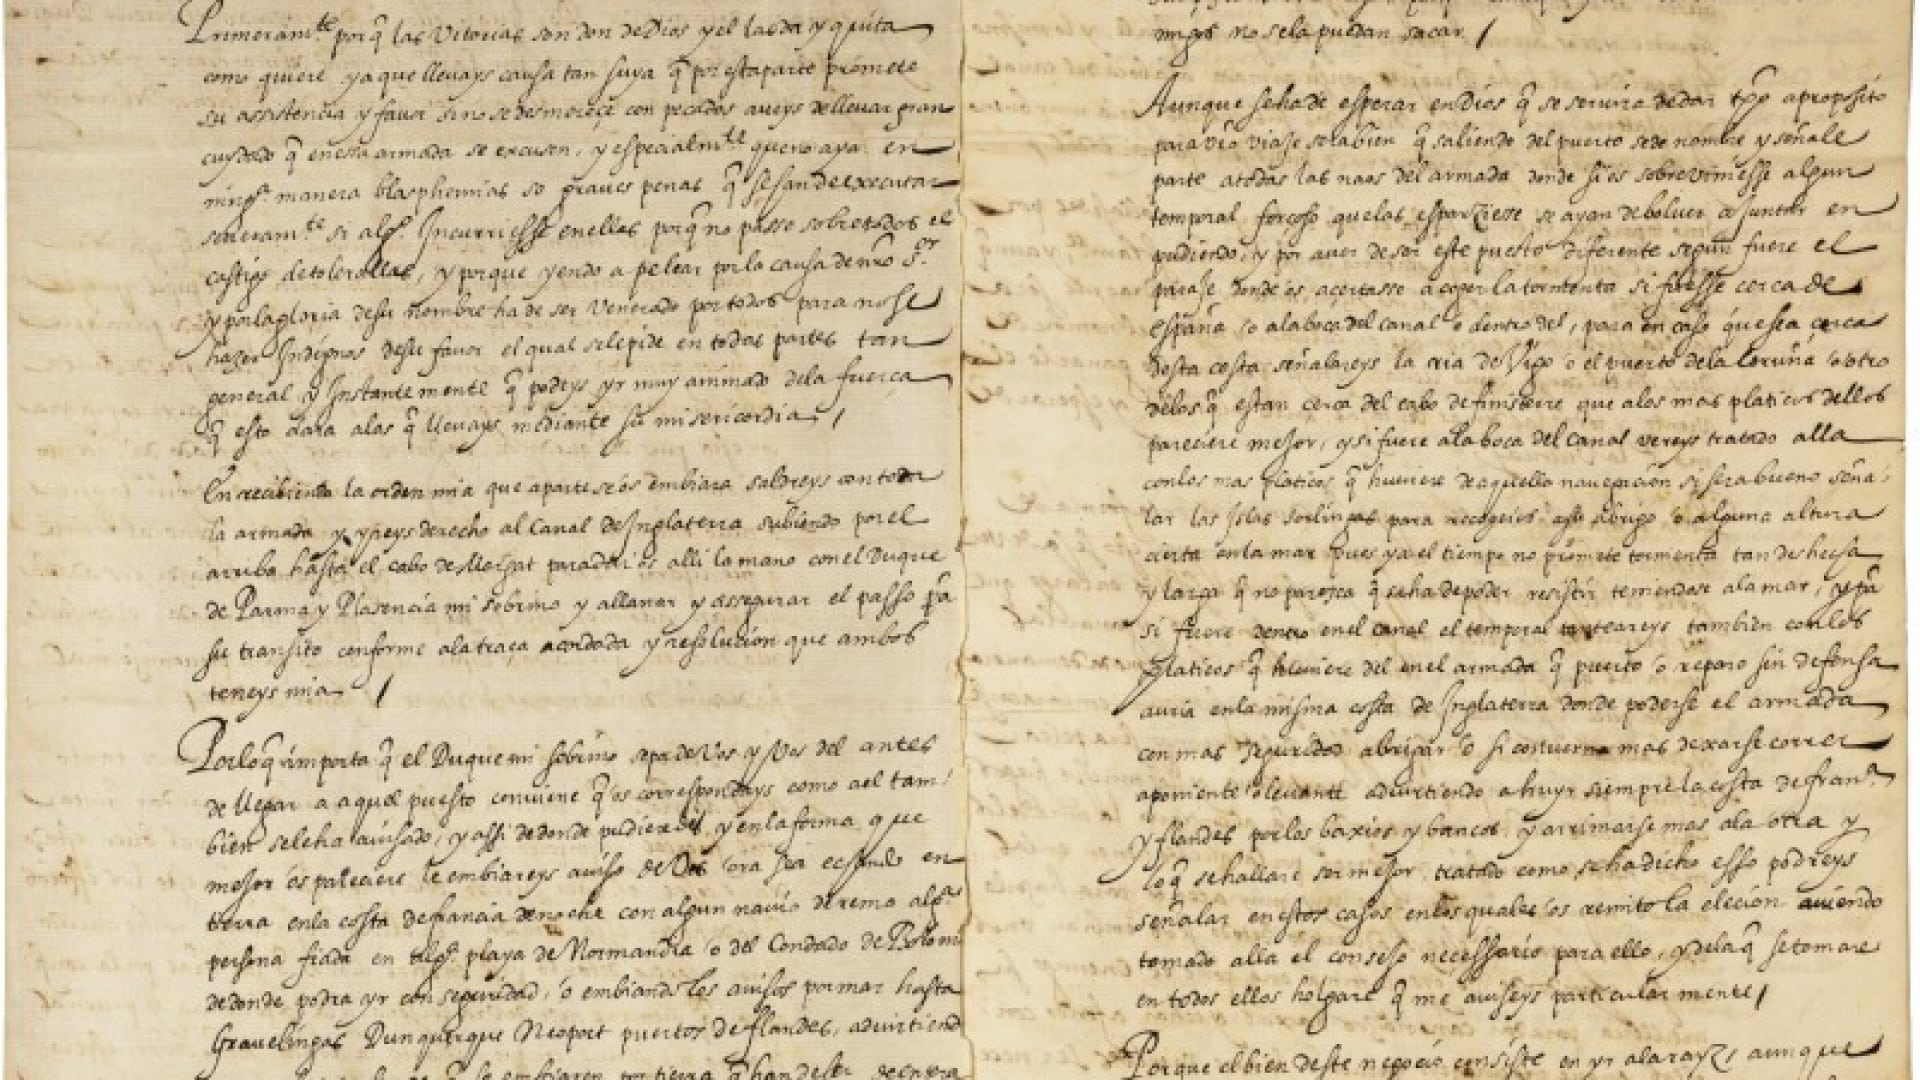 Primeramte porq̃ las Vitorias son don de Dios y el las da y quita
como quiere y a que llevays causa tan suya q̃ por esta parte promete
su assistencia y favor si no se desmereçe con pecados aveys de llevar gran
cuydado q̃ en essa armada se excusen, y especialmte que no aya en
ningª manera blasphemias so graves penas q̃ se han de executar
severamte si algº Incurriesse en ellas porq̃ no passe sobre todos el
castigo de tolerallas, y porque yendo a pelear por la causa de nr̃o Sor
y por la gloria de su nombre ha de ser venerado por todos para no se
hazer Indignos de su favor el qual se le pide en todas partes tan
general y Instantemente q̃ podeys yr muy animado de la fuerça
q̃ esto dara a las q̃ llevays mediante su misericordia /
En recibiendo la orden mia que aparte se os embiara saldreys con toda
la armada y yreys derecho al Canal de Inglaterra subiendo por el
arriba hasta el cabo de Margat para daros alli la mano con el Duque
de Parma y Plasencia mi sobrino y allanar y assegurar el passo pa
su transito conforme a la traça acordada y resolucion que ambos
teneys mia /
Por lo q̃ importa q̃ el Duque mi sobrino sepa de Vos y Vos del antes
de llegar a aquel puesto conviene q̃ os correspondays como a el tam
bien se le ha avisado, y assi de donde pudieredes y en la forma que
mejor os pareciere le embiareys aviso de Vos ora sea echando en
tierra en la costa de francia de noche con algun navio de remo algª
persona fiada en algª playa de Normandia o del Condado de Bolom
de donde podra yr con seguridad, o embiando los avisos por mar hasta
Gravelingas Dunquerque Neoport puertos de flandes, advirtiendo
q̃ se embiaren por tierra q̃ han de ser
migos no se la puedan sacar /
Aunque se ha de esperar en Dios q̃ se servira de dar tp̃o a proposito
para vr̃o viaje sera bien q̃ saliendo del puerto se de nombre y señale
parte a todas las naos del armada donde si os sobreviniesse algun
temporal forçoso que las esparziesse se ayan de bolver a juntar en
pudiendo, y por aver de ser este puesto diferente segun fuere el
paraje donde os acertasse a coger la tormenta si fuesse cerca de
españa o a la boca del canal o dentro del, para en caso que sea cerca
desta costa señalareys la ria de Vigo o el puerto de la Coruña o otro
de los q̃ estan cerca del cabo de finisterre que a los mas platicos dellos
pareciere mejor, y si fuere a la boca del Canal vereys tratado alla
con los mas platicos q̃ huviere de aquella navegacion si sera bueno seña
lar las Islas sorlingas para recogeros a su abrigo o alguna altura
cierta en la mar pues ya el tiempo no promete tormenta tan deshecha
y larga q̃ no parezca q̃ se ha de poder resistir teniendose a la mar, y ya
si fuere dentro en el canal el temporal tanteareys tambien con los
platicos q̃ huviere del en el armada q̃ puerto o reparo sin defensa
avria en la misma costa de Inglaterra donde poderse el armada
con mas seguridad abrigar o si converna mas dexarse correr
a poniente o levante advirtiendo a huyr siempre la costa de franª
y flandes por los baxios y bancos y arrimarse mas a la otra y
lo q̃ se hallare ser mejor tratado como se ha dicho esso podreys
señalar en estos casos en los quales os remito la elecion aviendo
tomado alla el consejo necessario para ello, y de la q̃ se tomare
en todos ellos holgare q̃ me aviseys particularmente /
Porque el bien deste negocio consiste en yr a la rayz aunque